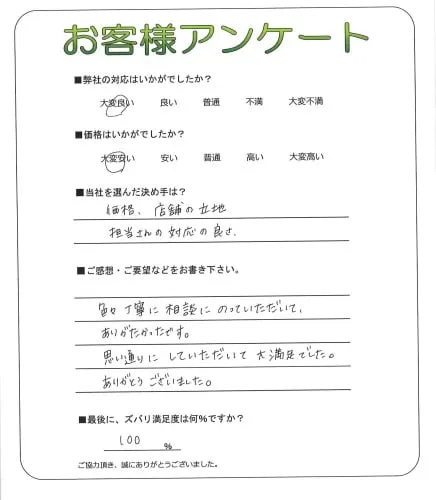 お客様アンケート
■弊社の対応はいかがでしたか？
大変良い 良い 普通 不満 大変不満
■価格はいかがでしたか？
大変安い 安い 普通 高い 大変高い
■当社を選んだ決め手は？
価格、店舗の立地
担当さんの対応の良さ、
■ご感想・ご要望などをお書き下さい。
色々丁寧に相談にのっていただいて、
ありがたかったです。
思い通りにしていただいて大満足でした。
ありがとうございました。
■最後に、ズバリ満足度は何％ですか？
100 %
ご協力頂き、誠にありがとうございました。